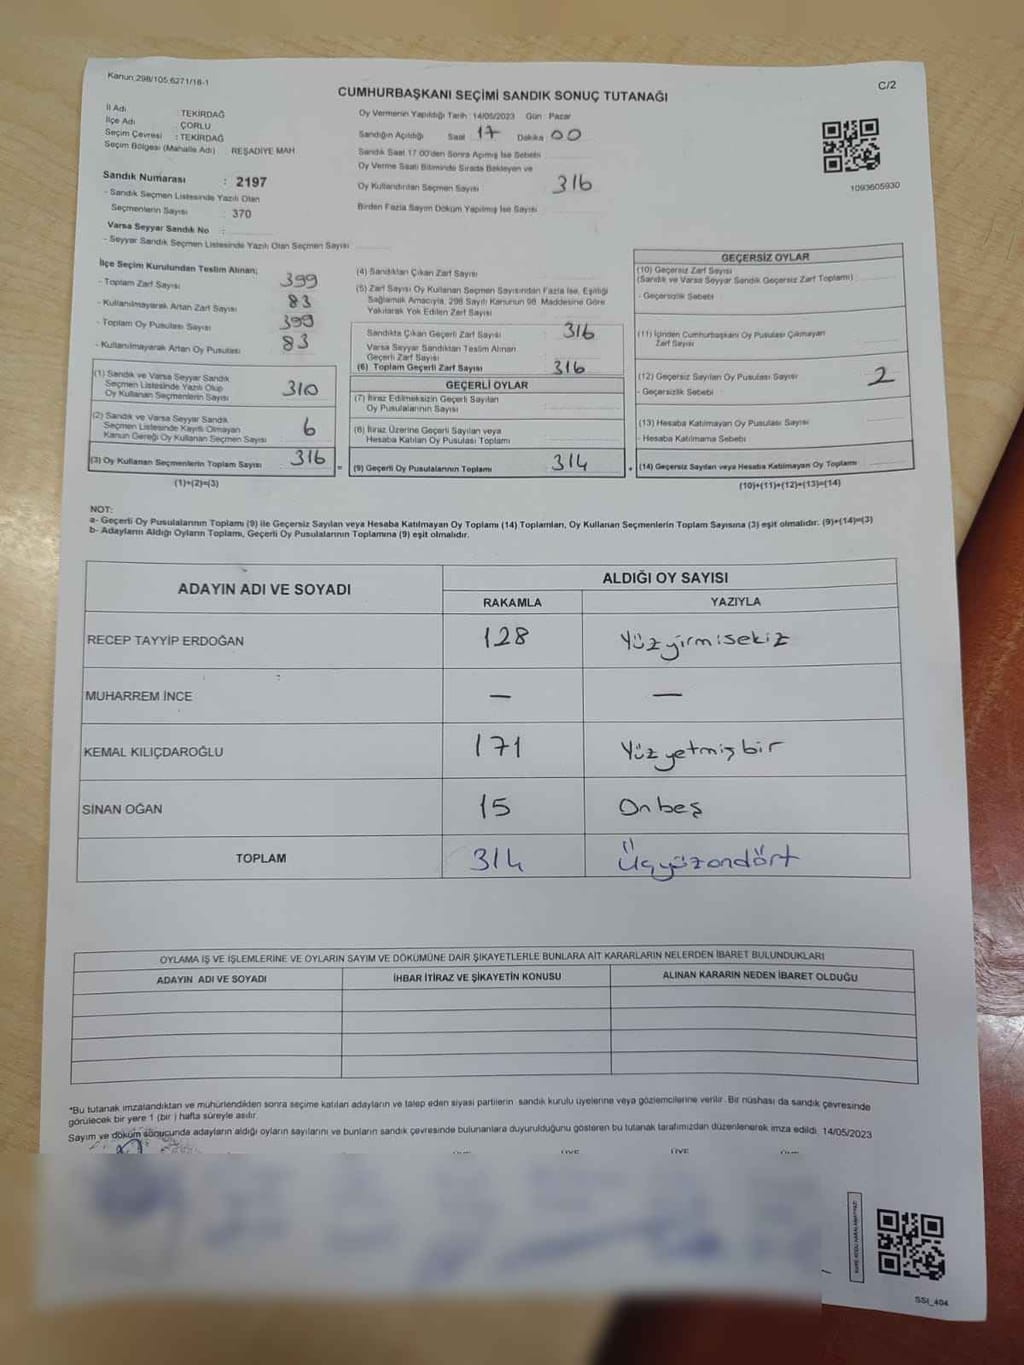 Kanun 298/105,6271/18-1
C/2
CUMHURBAŞKANI SEÇİMİ SANDIK SONUÇ TUTANAĞI
İl Adı : TEKİRDAĞ
İlçe Adı : ÇORLU
Seçim Çevresi : TEKİRDAĞ
Seçim Bölgesi (Mahalle Adı) REŞADİYE MAH.
Sandık Numarası : 2197
- Sandık Seçmen Listesinde Yazılı Olan
Seçmenlerin Sayısı : 370
Varsa Seyyar Sandık No :
- Seyyar Sandık Seçmen Listesinde Yazılı Olan Seçmen Sayısı
Oy Vermenin Yapıldığı Tarih 14/05/2023 Gün : Pazar
Sandığın Açıldığı Saat 17 Dakika 00
Sandık Saat 17.00'den Sonra Açılmış İse Sebebi
Oy Verme Saati Bitiminde Sırada Bekleyen ve
Oy Kullandırılan Seçmen Sayısı 316
Birden Fazla Sayım Döküm Yapılmış İse Sayısı
1093605930
İlçe Seçim Kurulundan Teslim Alınan;
- Toplam Zarf Sayısı 399
- Kullanılmayarak Artan Zarf Sayısı 83
- Toplam Oy Pusulası Sayısı 399
- Kullanılmayarak Artan Oy Pusulası 83
(1) Sandık ve Varsa Seyyar Sandık
Seçmen Listesinde Yazılı Olup
Oy Kullanan Seçmenlerin Sayısı 310
(2) Sandık ve Varsa Seyyar Sandık
Seçmen Listesinde Kayıtlı Olmayan
Kanun Gereği Oy Kullanan Seçmen Sayısı 6
(3) Oy Kullanan Seçmenlerin Toplam Sayısı 316
(1)+(2)=(3)
(4) Sandıktan Çıkan Zarf Sayısı
(5) Zarf Sayısı Oy Kullanan Seçmen Sayısından Fazla İse, Eşitliği
Sağlamak Amacıyla, 298 Sayılı Kanunun 98. Maddesine Göre
Yakılarak Yok Edilen Zarf Sayısı
Sandıkta Çıkan Geçerli Zarf Sayısı 316
Varsa Seyyar Sandıktan Teslim Alınan
Geçerli Zarf Sayısı
(6) Toplam Geçerli Zarf Sayısı 316
GEÇERLİ OYLAR
(7) İtiraz Edilmeksizin Geçerli Sayılan
Oy Pusulalarının Sayısı
(8) İtiraz Üzerine Geçerli Sayılan veya
Hesaba Katılan Oy Pusulası Toplamı
= (9) Geçerli Oy Pusulalarının Toplamı 314
GEÇERSİZ OYLAR
(10) Geçersiz Zarf Sayısı
(Sandık ve Varsa Seyyar Sandık Geçersiz Zarf Toplamı)
- Geçersizlik Sebebi
(11) İçinden Cumhurbaşkanı Oy Pusulası Çıkmayan
Zarf Sayısı
(12) Geçersiz Sayılan Oy Pusulası Sayısı 2
- Geçersizlik Sebebi
(13) Hesaba Katılmayan Oy Pusulası Sayısı
- Hesaba Katılmama Sebebi
+ (14) Geçersiz Sayılan veya Hesaba Katılmayan Oy Toplamı
(10)+(11)+(12)+(13)=(14)
NOT:
a- Geçerli Oy Pusulalarının Toplamı (9) ile Geçersiz Sayılan veya Hesaba Katılmayan Oy Toplamı (14) Toplamları, Oy Kullanan Seçmenlerin Toplam Sayısına (3) eşit olmalıdır. (9)+(14)=(3)
b- Adayların Aldığı Oyların Toplamı, Geçerli Oy Pusulalarının Toplamına (9) eşit olmalıdır.
ADAYIN ADI VE SOYADI
ALDIĞI OY SAYISI
RAKAMLA YAZIYLA
RECEP TAYYİP ERDOĞAN 128 Yüzyirmisekiz
MUHARREM İNCE — —
KEMAL KILIÇDAROĞLU 171 Yüzyetmişbir
SİNAN OĞAN 15 Onbeş
TOPLAM 314 Üçyüzondört
OYLAMA İŞ VE İŞLEMLERİNE VE OYLARIN SAYIM VE DÖKÜMÜNE DAİR ŞİKAYETLERLE BUNLARA AİT KARARLARIN NELERDEN İBARET BULUNDUKLARI
ADAYIN ADI VE SOYADI İHBAR İTİRAZ VE ŞİKAYETİN KONUSU ALINAN KARARIN NEDEN İBARET OLDUĞU
*Bu tutanak imzalandıktan ve mühürlendikten sonra seçime katılan adayların ve talep eden siyasi partilerin sandık kurulu üyelerine veya gözlemcilerine verilir. Bir nüshası da sandık çevresinde
görülecek bir yere 1 (bir) hafta süreyle asılır.
Sayım ve döküm sonucunda adayların aldığı oyların sayılarını ve bunların sandık çevresinde bulunanlara duyurulduğunu gösteren bu tutanak tarafımızdan düzenlenerek imza edildi. 14/05/2023
SSI_404